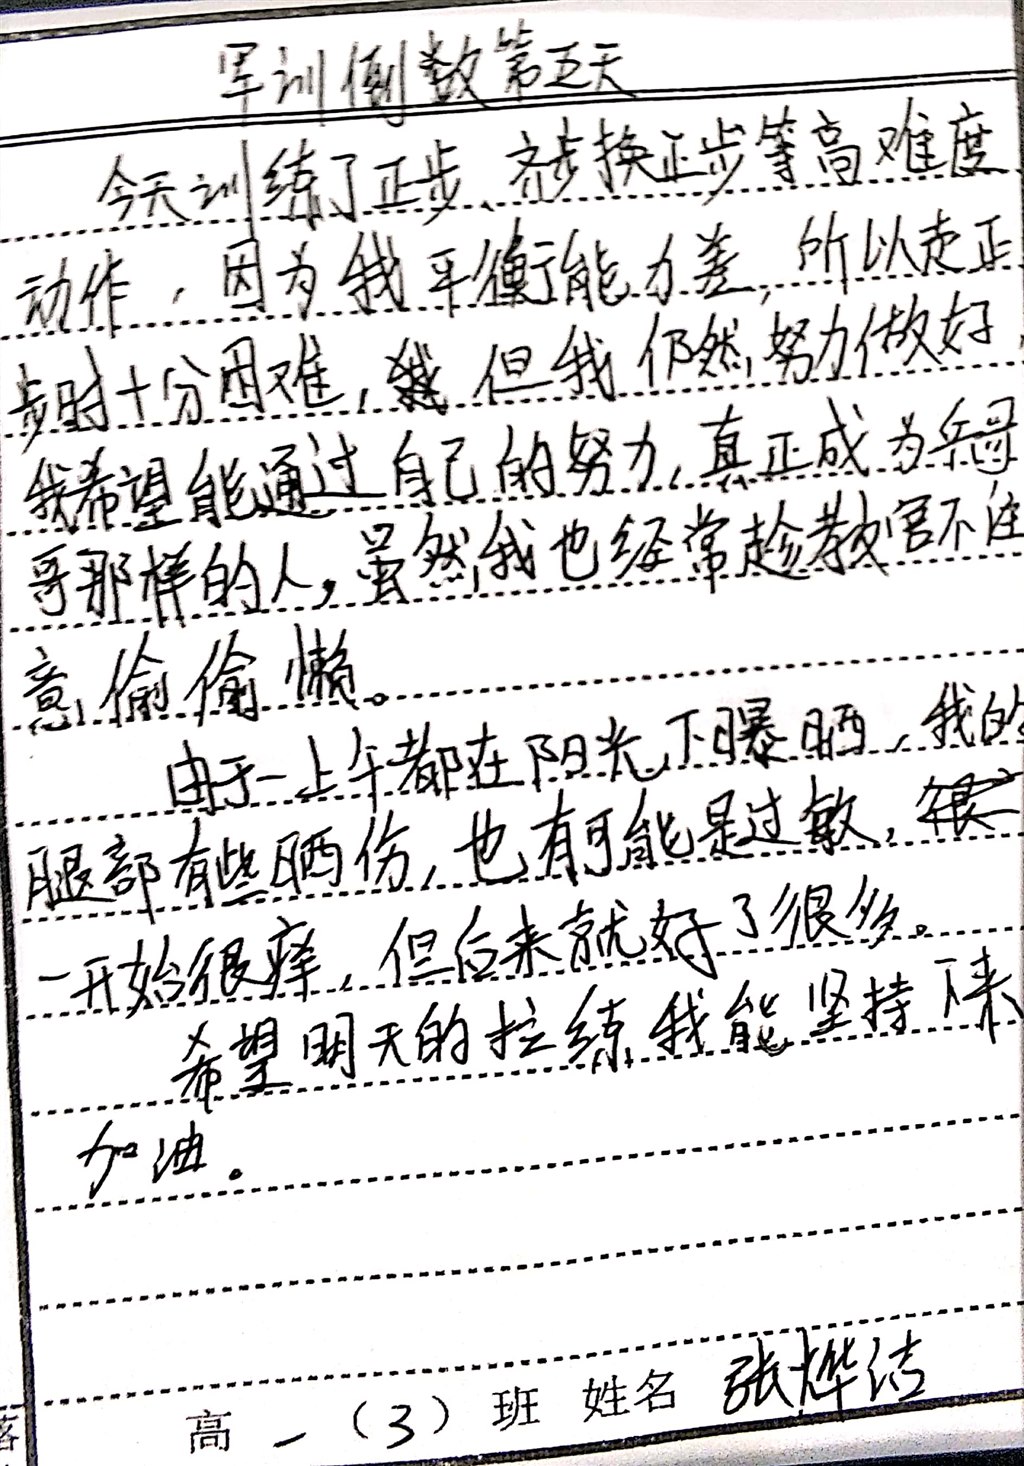 军训倒数第五天
今天训练了正步、齐步换正步等高难度
动作，因为我平衡能力差，所以走正
步时十分困难，但我仍然努力做好，
我希望能通过自己的努力，真正成为兵哥
哥那样的人，虽然我也经常趁教官不注
意偷偷懒。
由于一上午都在阳光下曝晒，我的
腿部有些晒伤，也有可能是过敏，
一开始很痒，但后来就好了很多。
希望明天的拉练我能坚持下来
加油。
高一（3）班 姓名 张烨洁
落